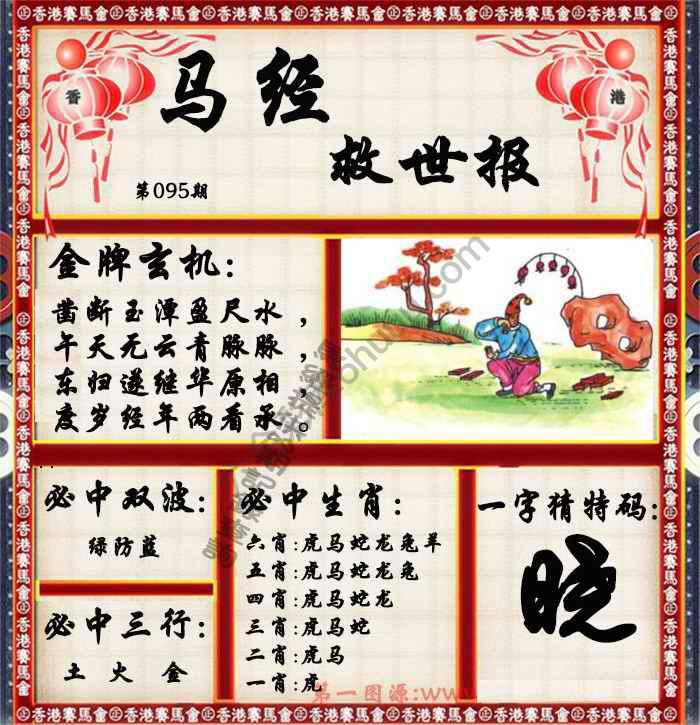 香港賽馬會
香
港
马经
救世报
第095期
金牌玄机:
凿断玉潭盈尺水，
午天无云青脉脉，
东归遂继华原相，
度岁经年两看承。
必中双波:
绿防蓝
必中三行:
土 火 金
必中生肖:
六肖:虎马蛇龙兔羊
五肖:虎马蛇龙兔
四肖:虎马蛇龙
三肖:虎马蛇
二肖:虎马
一肖:虎
一字猜特码:
晓
第一图源:www